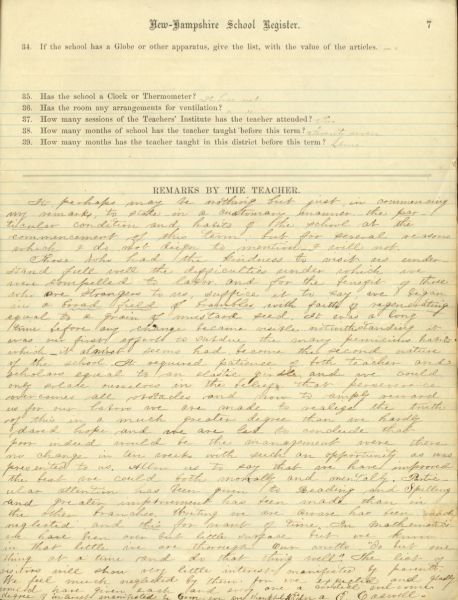 New-Hampshire School Register.
7
34. If the school has a Globe or other apparatus, give the list, with the value of the articles.
35. Has the school a Clock or Thermometer?
36. Has the room any arrangements for ventilation?
37. How many sessions of the Teachers' Institute has the teacher attended?
38. How many months of school has the teacher taught before this term?
39. How many months has the teacher taught in this district before this term?
REMARKS BY THE TEACHER.
It perhaps may be nothing but just, in commencing
my remarks, to state in a summary manner the par
ticular condition and habits of the school at the
commencement of this term, but for several reasons
which I do not deign to mention I will not.
Those who had the kindness to visit us under
stand full well the difficulties under which we
were compelled to labor and for the benefit of those
who are strangers to us, suffice it to say we began
in a broad field of brambles with faith
equal to a grain of mustard seed. It was a long
time before any change became visible notwithstanding it
was our first effort to subdue the many pernicious habits
which it almost seems had become the second nature
of the school. It required patience of both teacher and
scholars equal to an and we could
only solace ourselves in the belief that perseverance
overcomes all obstacles and now to amply reward
us for our labors we are made to realize the truth
of this in a much greater degree than we alone
dared hope and we are led to conclude that
poor indeed would be the management were there
no change in ten weeks with such an opportunity as was
presented to us. Allow us to say that we have improved
the best we could both morally and mentally. Partic
ular attention has been given to Reading and Spelling
and greater improvement has been made than in
the other branches. Writing we are aware has been much
neglected and this for want of time. In Mathematics
we have gone over but little surface but we think
in that little we are thorough. Our motto "Do but one
thing at a time and do that thing well." The list of
visitors will show very little interest manifested by parents.
We feel much neglected by them for we expected and gladly
would have given each and every one a cordial welcome.
C. Caswell.